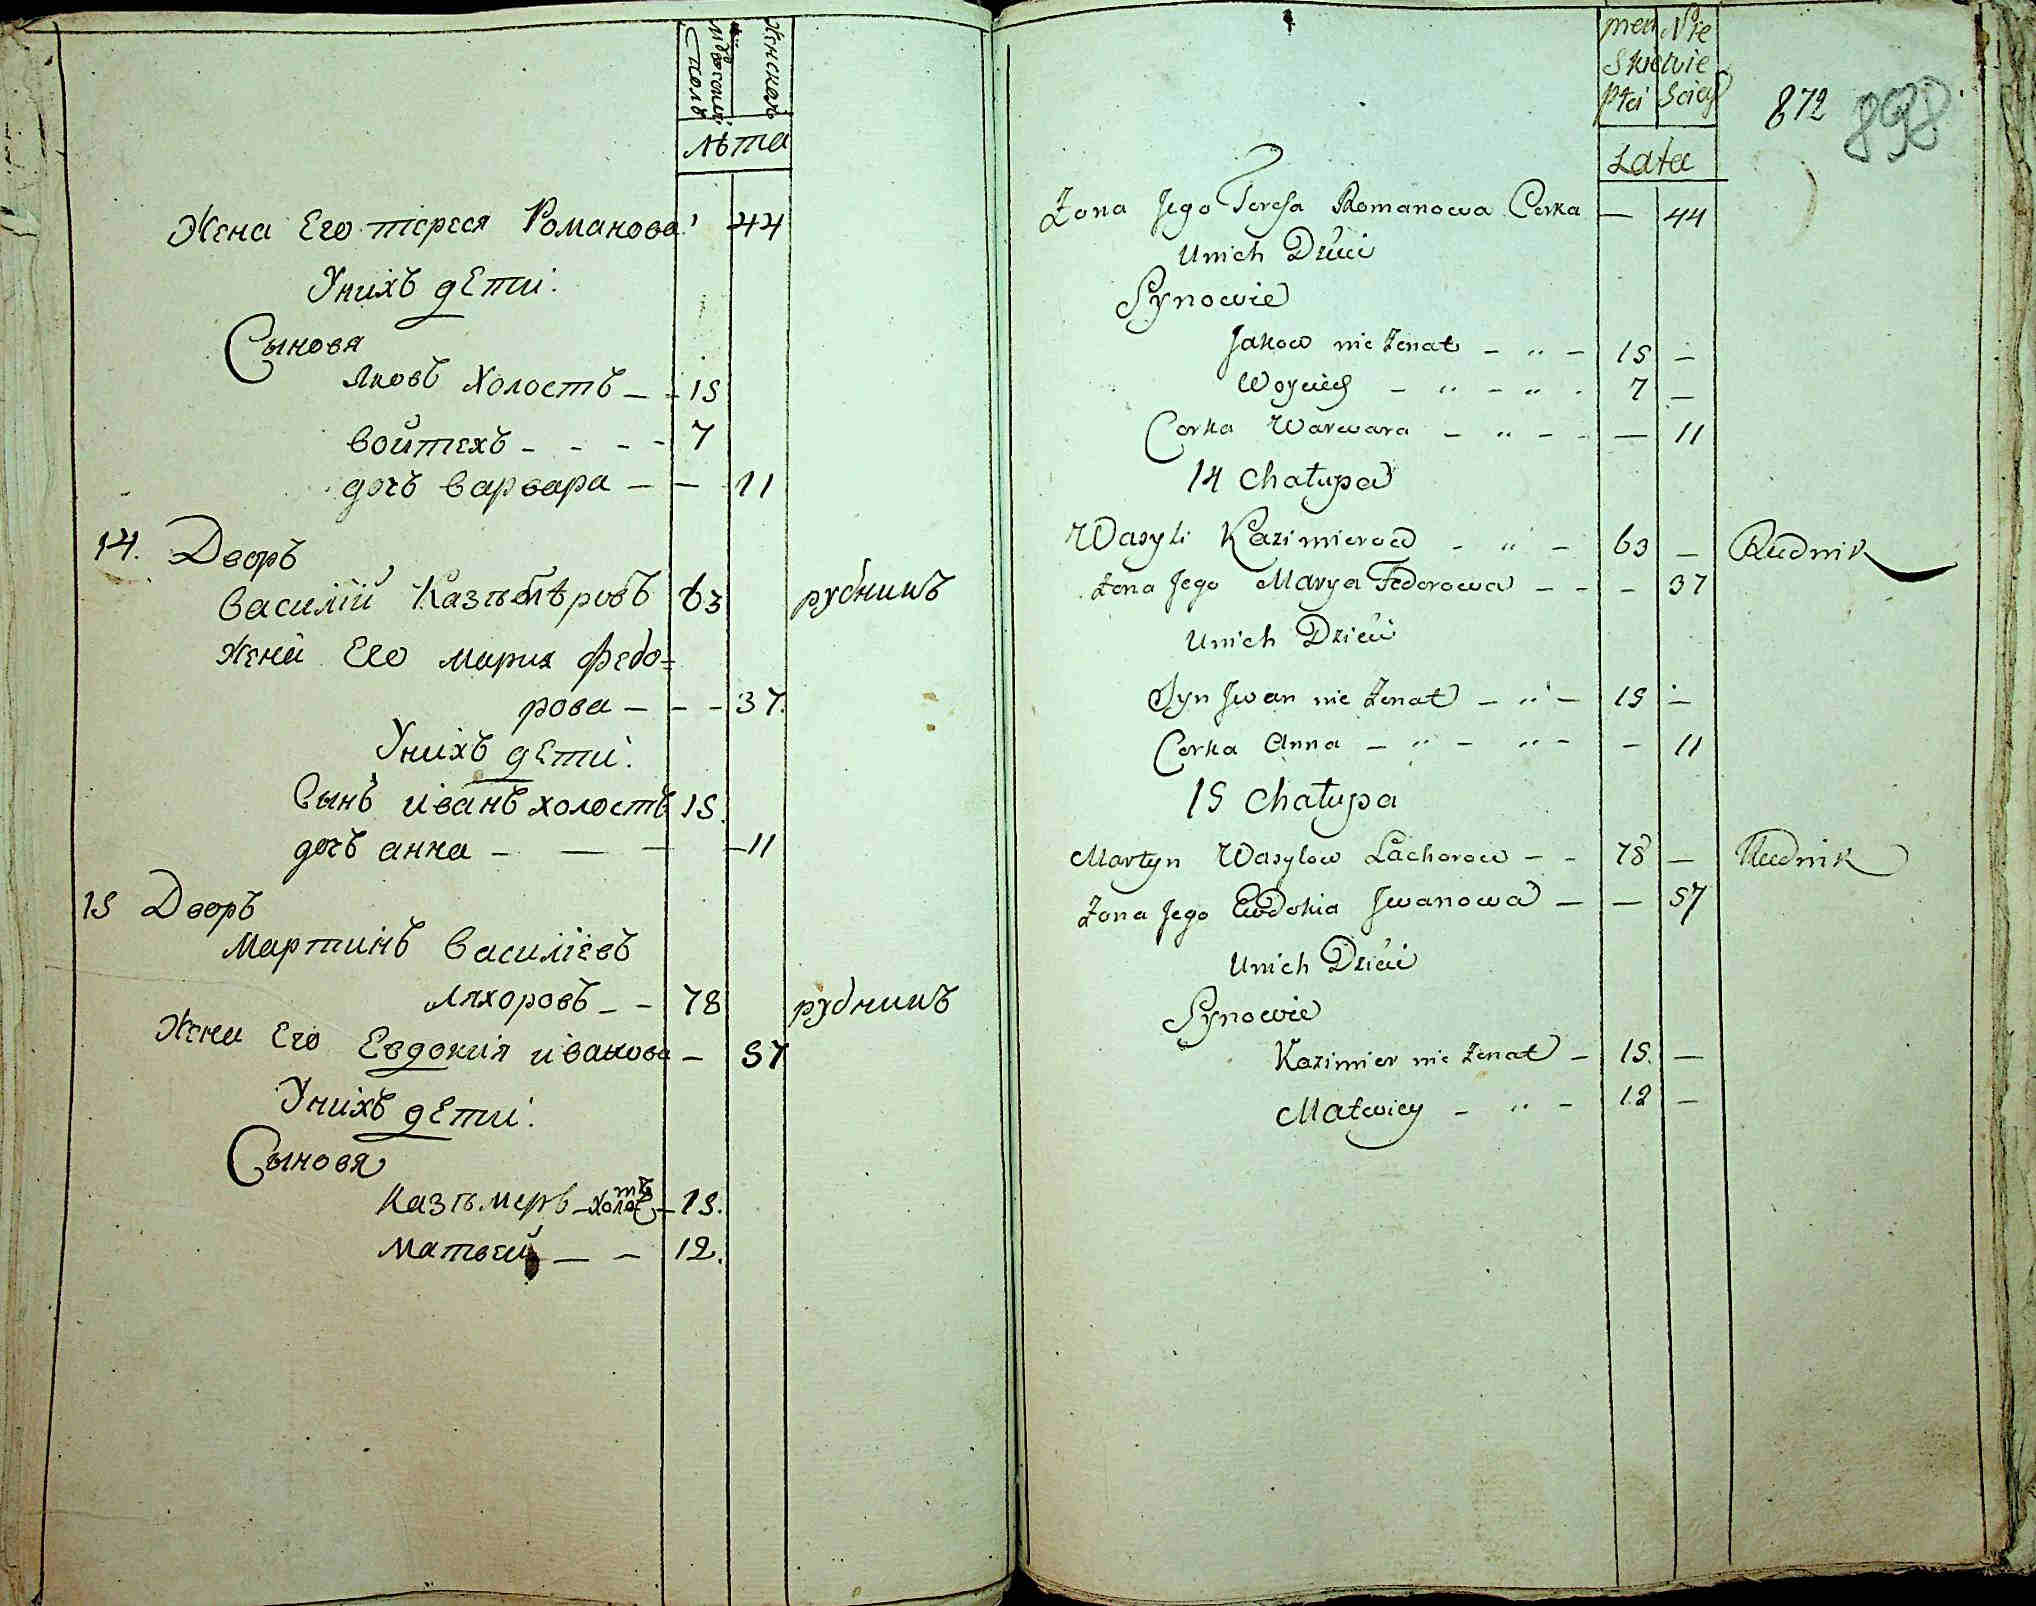 мужескъ полъ
женскъ
лѣта
Жена Его тереся Романова 44
Унихъ дЕти
Сыновя
Яковъ холостъ – – 15
войтехъ – – – – 7
дочъ варвара – – 11
14. Дворъ
василій Казѣмѣровъ 63 рудникъ
жена Его мария федо=
рова – – – 37.
Унихъ дЕти
Сынъ иванъ холостъ 15.
дочъ анна – — — – 11
15 Дворъ
Мартинъ василіевъ
Ляхоровъ – – 78 рудникъ
Жена Его Евдокия иванова – 57
Унихъ дЕти
Сыновя
казѣмеръ – холостъ – 15.
матвей – – 12.
męz Nie
skie wie
płci sciey
872 898
Lata
Zona Jego Teresa Romanowa Corka — 44
Unich Dzieci
Synowie
Jakow nie żenat – „ – 15 –
Woyciech – „ – „ . 7 –
Corka Warwara – „ – – — 11
14 Chałupa
Wasyli Kazimierow – „ – 63 – Rudnik
żona Jego Marya Fedorowa – – – 37
Unich Dzieci
Syn Jwan nie żenat – „ – 15 –
Corka Anna – „ – „ – – 11
15 Chałupa
Martyn Wasylow Lachorow – – 78 – Rudnik
Zona Jego Ewdokia Jwanowa — — 57
Unich Dzieci
Synowie
Kazimier nie żenat – 15. —
Matwiey – „ – 12 –